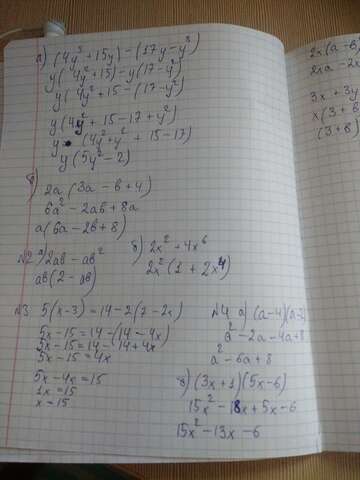 а) (4y³ + 15y) - (17y - y³)
y(4y² + 15) - y(17 - y²)
y(4y² + 15 - (17 - y²)
y(4y² + 15 - 17 + y²)
y (4y² + y² + 15 - 17)
y(5y² - 2)
б) 2a (3a - b + 4)
6a² - 2ab + 8a
a(6a - 2b + 8)
№2 а) 2ab - ab²
ab(2 - ab)
б) 2x² + 4x⁶
2x²(1 + 2x⁴)
№3 5(x - 3) = 14 - 2(7 - 2x)
5x - 15 = 14 - (14 - 4x)
5x - 15 = 14 - 14 + 4x
5x - 15 = 4x
5x - 4x = 15
1x = 15
x = 15
№4 а) (a - 4)(a - 2)
a² - 2a - 4a + 8
a² - 6a + 8
(3x + 1)(5x - 6)
15x² - 18x + 5x - 6
15x² - 13x - 6
2x(a - b)
2xa - 2x
3x + 3y
x(3 +
(3 + b)